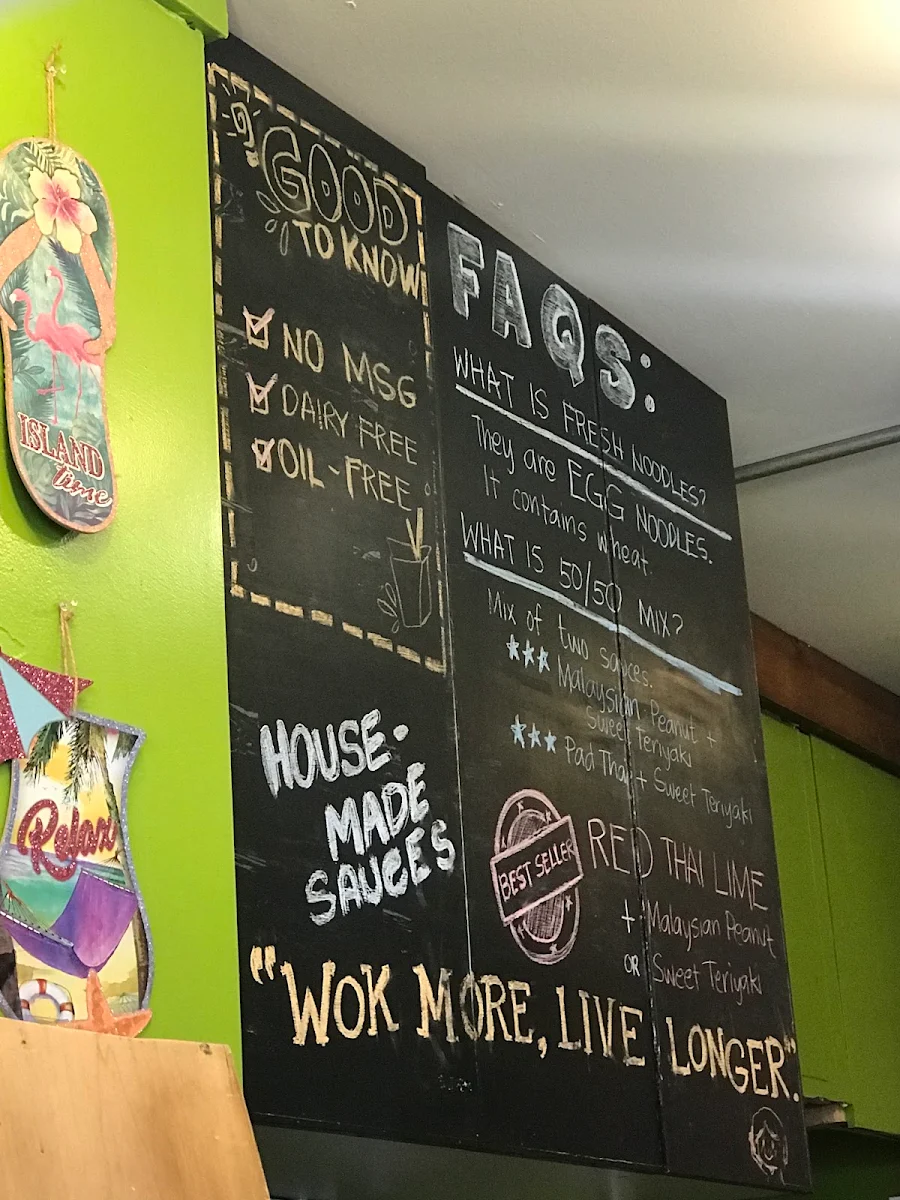 GOOD
TO KNOW
NO MSG
DAIRY FREE
OIL-FREE
HOUSE-
MADE
SAUCES
FAQS:
WHAT IS FRESH NOODLES?
They are EGG NOODLES.
It contains wheat.
WHAT IS 50/50 MIX?
Mix of two sauces.
Malaysian Peanut +
Sweet Teriyaki
Pad Thai + Sweet Teriyaki
BEST SELLER
RED THAI LIME
+ Malaysian Peanut
OR Sweet Teriyaki
"WOK MORE, LIVE LONGER".
ISLAND
time
Relax